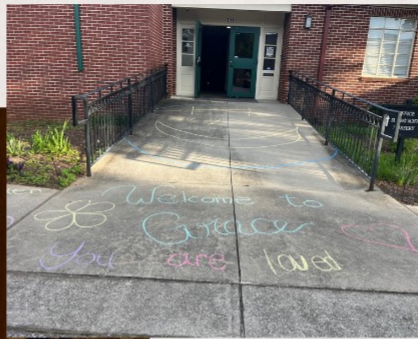 Welcome to
Grace
You are loved